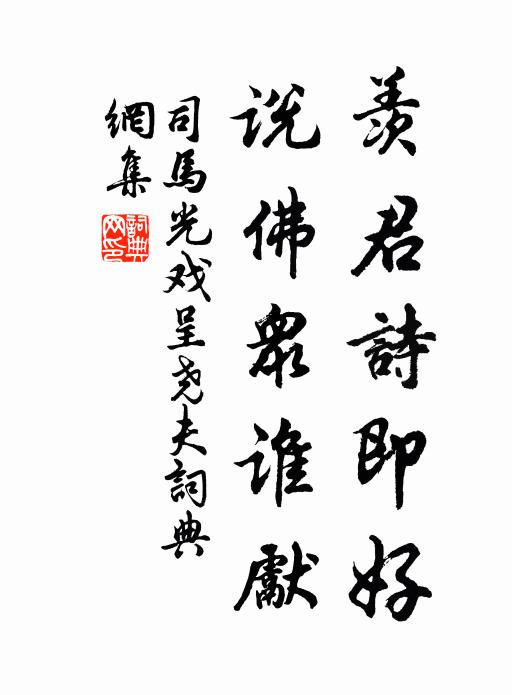 羨君詩即好
説佛衆誰獻
司馬光戏呈尧夫詞典
網集
詞典网印